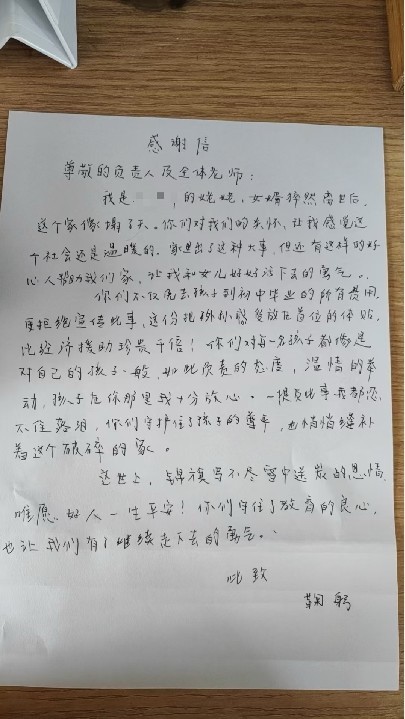 感谢信
尊敬的负责人及全体老师：
我是，的姥姥，女婿猝然离世后，
这个家像塌了天。你们对我们的关怀，让我感觉这
个社会还是温暖的。家里出了这种大事，但还有这样的好
心人帮助我们家，让我和女儿好好活下去的勇气。
你们不仅免去孩子到初中毕业的所有费用，
更拒绝宣传此事，这份把孩子感受放在首位的体贴，
比经济援助珍贵千倍！你们对每一名孩子都像是
对自己的孩子一般，如此负责的态度，温情的举
动，孩子在你那里我十分放心。一提及此事我都忍
不住落泪，你们守护住了孩子的尊严，也悄悄缝补
着这个破碎的家。
这世上，锦旗写不尽雪中送炭的恩情，
唯愿好人一生平安！你们守住了教育的良心，
也让我们有了继续走下去的勇气。
此致
鞠躬